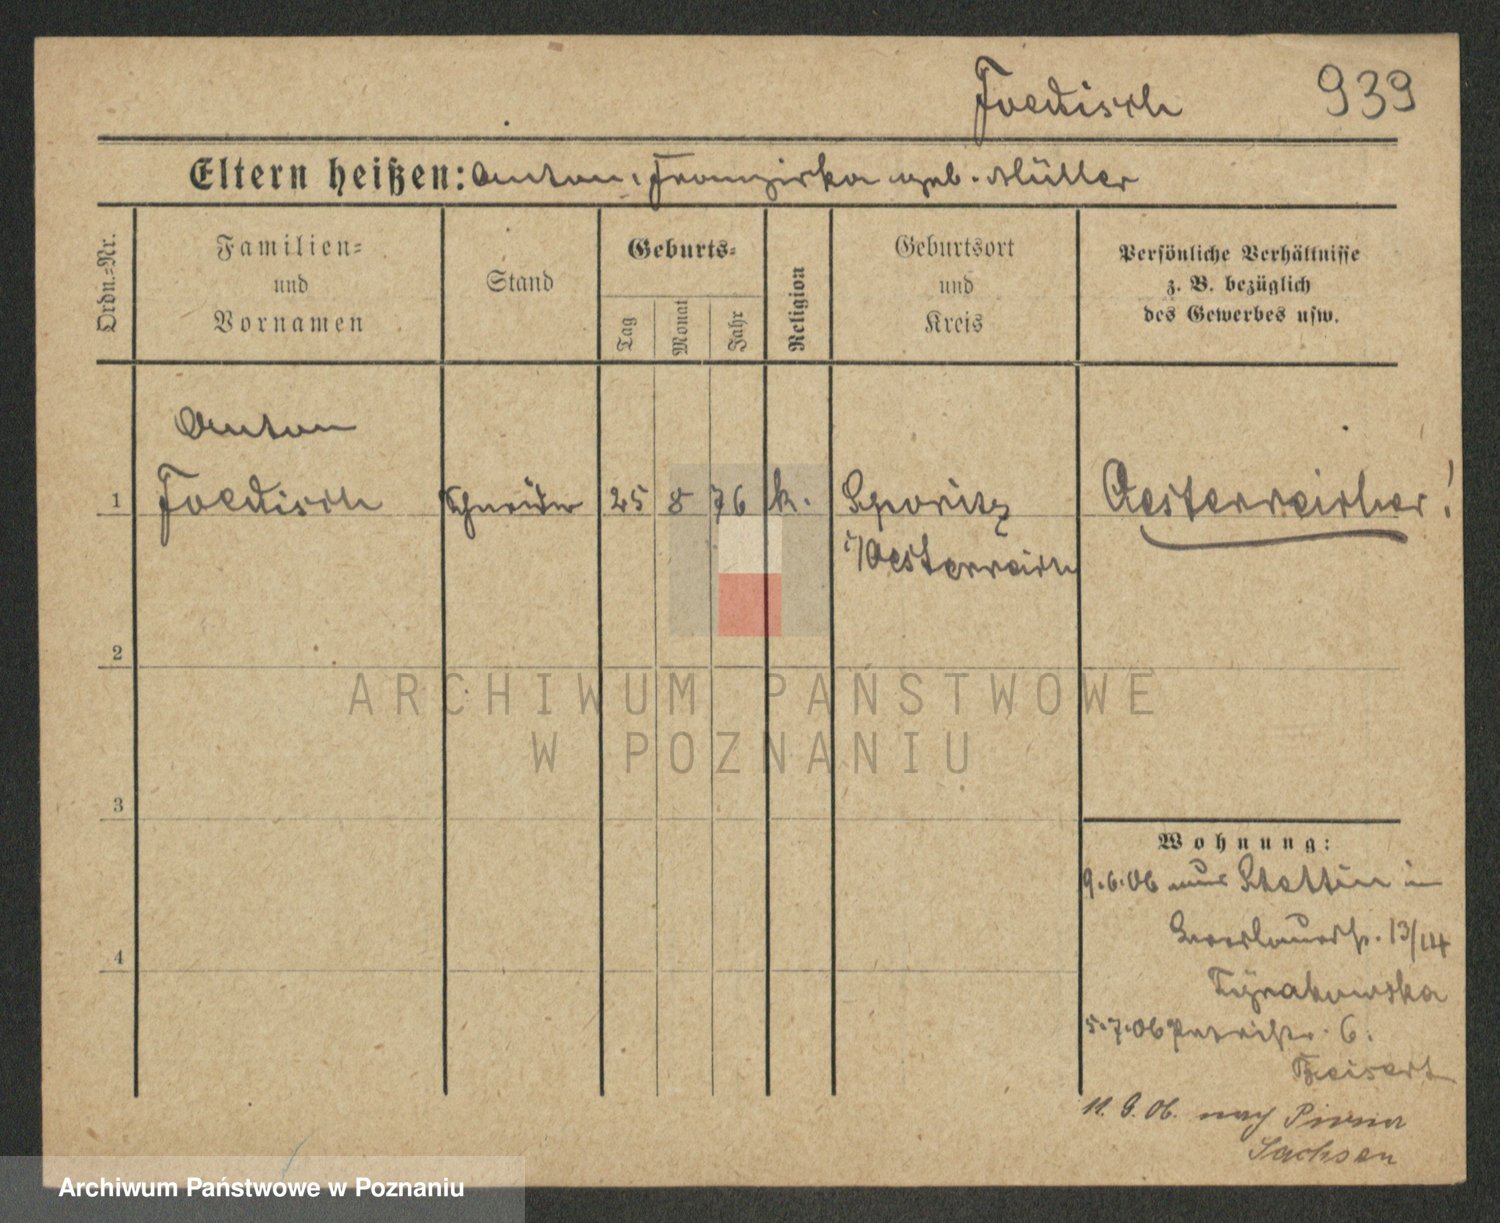 Foedisch 939
Eltern heißen: Anton, Franziska geb. Müller
Ordn.-Nr.
Familien-
und
Vornamen
Stand
Geburts-
Tag
Monat
Jahr
Religion
Geburtsort
und
Kreis
Persönliche Verhältnisse
z. B. bezüglich
des Gewerbes usw.
Anton
1 Foedisch Schneider 25 8 76 k. Sporitz Oesterreicher!
i/Oesterreich
2
3
4
ARCHIWUM PAŃSTWOWE
W POZNANIU
Wohnung:
9.6.06 aus Stettin in
13/14
5.7.06 Petristr. 6.
11.9.06. nach Pirna
Sachsen
Archiwum Państwowe w Poznaniu